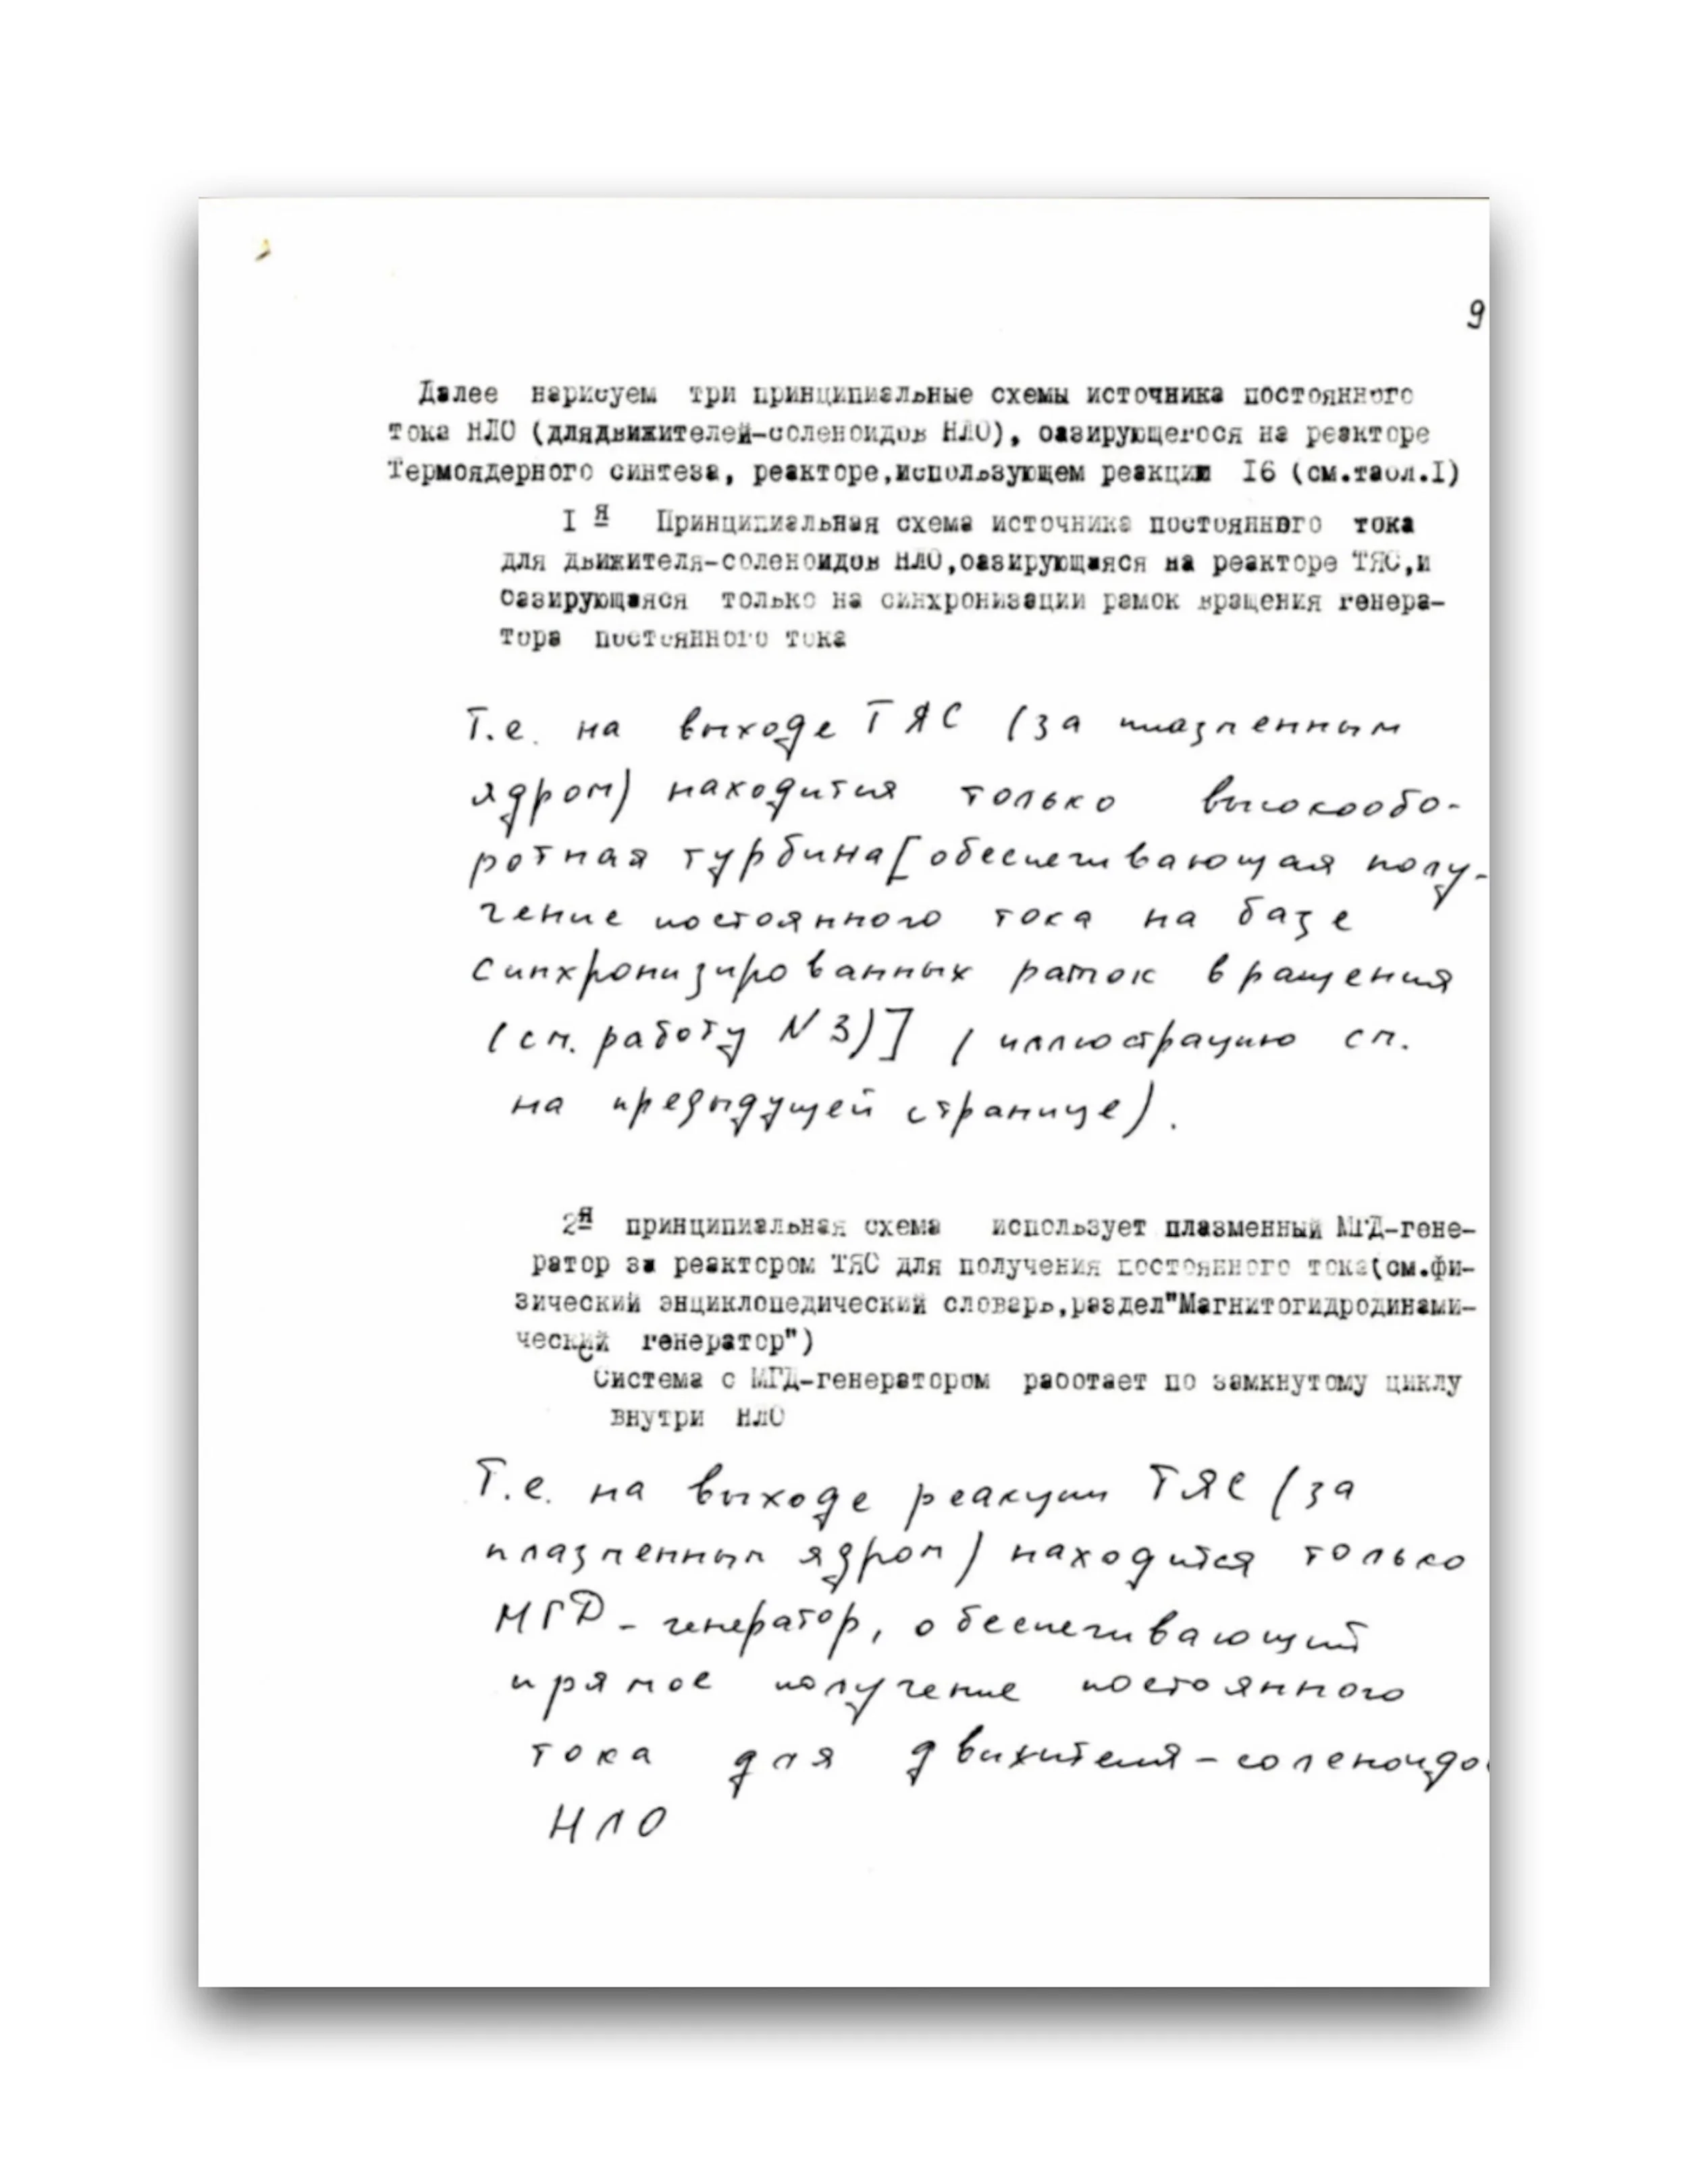 9
Далее нарисуем три принципиальные схемы источника постоянного
тока НЛО (длядвижителей-соленоидов НЛО), базирующегося на реакторе
Термоядерного синтеза, реакторе,использующем реакции I6 (см.табл.I)
I я Принципиальная схема источника постоянного тока
для движителя-соленоидов НЛО,базирующаяся на реакторе ТЯС,и
базирующаяся только на синхронизации рамок вращения генера-
тора постоянного тока
Т.е. на выходе ТЯС (за плазменным
ядром) находится только высокообо-
ротная турбина[обеспечивающая полу-
чение постоянного тока на базе
синхронизированных рамок вращения
(см. работу N 3)] (иллюстрацию см.
на предыдущей странице).
2я принципиальная схема использует плазменный МГД-гене-
ратор за реактором ТЯС для получения постоянного тока(см.фи-
зический энциклопедический словарь,раздел"Магнитогидродинами-
ческий генератор")
Система с МГД-генератором работает по замкнутому циклу
внутри НЛО
Т.е. на выходе реакции ТЯС (за
плазменным ядром) находится только
МГД-генератор, обеспечивающий
прямое получение постоянного
тока для движителя-соленоидо
НЛО